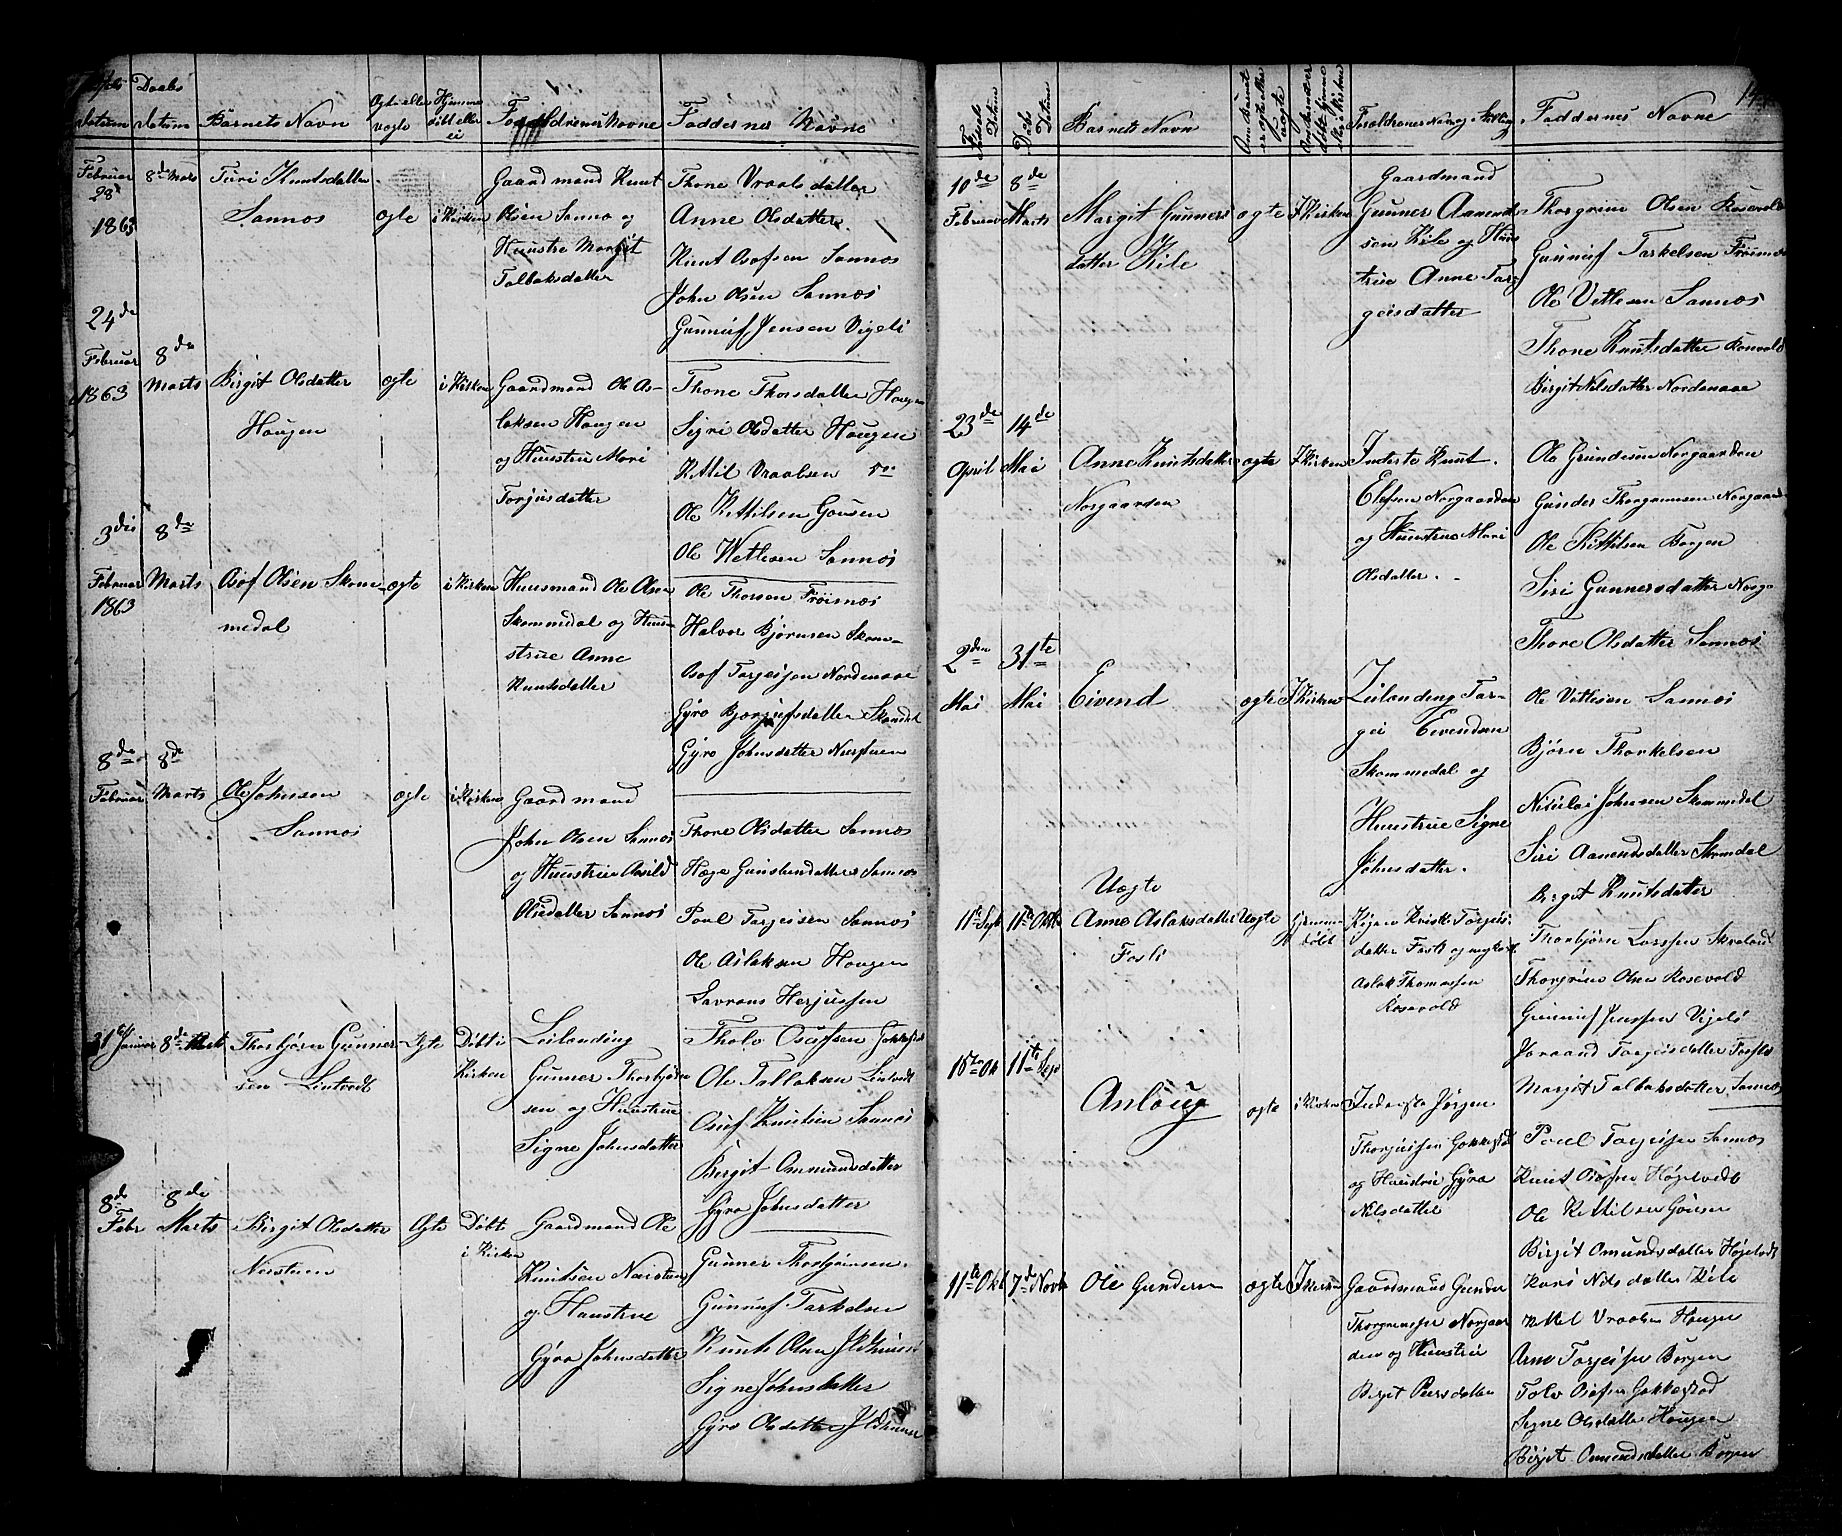 Datum
Daabs
Datum
Barnets Navn
Ægte eller
uægte
Hjemme
döbt eller
ei
Forældrenes Navne
Faddernes Navne
Februar
28
1863
8de Marts
Turi Knutsdatter
Sannæs
ægte
i Kirken
Gaardmand Knut
Olsen Sannæ og
Huustre Margit
Talbaksdatter
Thone Vraalsdatter
Anne Olsdatter
Knut Osofsen Sannæs
John Olsen Sannæs
Gunnuf Jensen Vigeli
24de
Februar
1863
8de
Marts
Birgit Olsdatter
Hougen
ægte
i Kirken
Gaardmand Ole As-
laksen Hougen
og Huustrue Mari
Torjusdatter
Thone Thorsdatter Hougen
Sigri Olsdatter Hougen
Kittil Vraalsen
Ole Kittilsen Gonsen
Ole Wetlesen Sannæs
3die
Februar
1863
8de
Marts
Osof Olsen Skom-
medal
ægte
i Kirken
Huusmand Ole Olsen
Skommedal og Huu-
strue Anne
Knutsdatter
Ole Thorsen Fröisnæs
Halvor Björnsen Skom-
Osof Targesjen Nordenaae
Gyro Bjorgufsdatter Skomdal
Gyro Johnsdatter Neirstuen
8de
Februar
8de
Marts
Ole Johnsen
Sannæs
ægte
i Kirken
Gaardmand
John Olsen Sannæs
og Huustrue Asvild
Olsdatter Sannæs
Thore Olsdatter Sannæs
Hæge Gunslundatter Sannæs
Poul Targeisen Sannæs
Ole Aslaksen Hougen
Lavrans Herjussen
31 Januar
8de Mart
Thorbjörn Gunner-
sen Lintvedt
Ægte
Döbt i
Kirken
Leilænding
Gunner Thorbjörn
sen og Huustrue
Signe Johnsdatter
Tholv Osufsen Gakkestad
Ole Tallaksen Lintvedt
Osuf Knutsen Sannæs
Birgit Ommundsdatter
Gyro Johnsdatter
8de
Febr
8de
Marts
Birgit Olsdatter
Neirstuen
Ægte
Döbt
i Kirken
Gaardmand Ole
Knutsen Neirstuen
og Huustrue
Gyro Johnsdatter
Gunner Thorbjörnsen
Gunnuf Tarkelsen
Knut Olsen
Signe Johnsdatter
Gyro Olsdatter
Datum
Daabs
Datum
Barnets Navn
Om Barnet
er ægte eller
uægte
Faddernes Navne
10de
Februar
8de
Marts
Margit Gunners
datter Kile
ægte
I Kirken
Gaardmand
Gunner Aamunds-
sen Kile og Huus
true Anne Tar-
geisdatter
Thorgrim Olsen Rosevold
Gunnuf Tarkelsen Fröisnæs
Ole Vetlesen Sannæs
Thone Knutsdatter Rosevold
Birgit Nilsdatter Nordenaae
23de
April
14de
Mai
Anne Knutsdatter
Norgaarden
ægte
I Kirken
Inderste Knut
Elefsen Norgaarden
og Huustrue Mari
Olsdatter.
Ole Grundesen Norgaarden
Gunder Thorgrimsen Norgaard
Ole Kittilsen Borgen
Siri Gunnersdatter Norga
Thore Olsdatter Sannæs
2den
Mai
31te
Mai
Eivend
ægte
I Kirken
Leilænding Tar-
gei Eivendsen
Skommedal og
Huustrue Signe
Johnsdatter.
Ole Vetlesen Sannæs
Björn Thorkelsen
Nikulai Johnsen Skommedal
Siri Aamundsdatter Skomdal
Birgit Knutsdatter
11te Sept
11te Okt
Uægte
Anne Aslaksdatter
Fosli
Uægte
Hjemme
döbt
Pigen Krist. Torgeis-
datter Fosli og
Aslak Thomassen
Rosevold
Thorbjörn Larssen Skreland
Thorgrim Olsen Rosevold
Gunnuf Jenssen Vigeli
Joraand Torgeisdatter Fosli
Margit Talbaksdatter Sannæs
11te Sep
Anlaug
ægte
i Kirken
Inderste Jörgen
Thorgiussen Gakkestad
og Huustrue Gyro
Nilsdatter
Poul Torjeisen Sannæs
Knut Osofsen Högetvedt
Ole Kittilsen Gönsen
Birgit Omundsdatter Högetvedt
Kari Nilsdatter Kile
11te Okt
7de Novb
Ole Gundersen
ægte
I Kirken
Gaardmand Gunder
Thorgrimsen Norgaar
den og Huustrue
Birgit Persdatter
Kittil Vraalsen Hougen
Arne Torjeisen Borgen
Tolv Osofsen Gakkestad
Signe Olsdatter Hougen
Birgit Omundsdatter Borgen